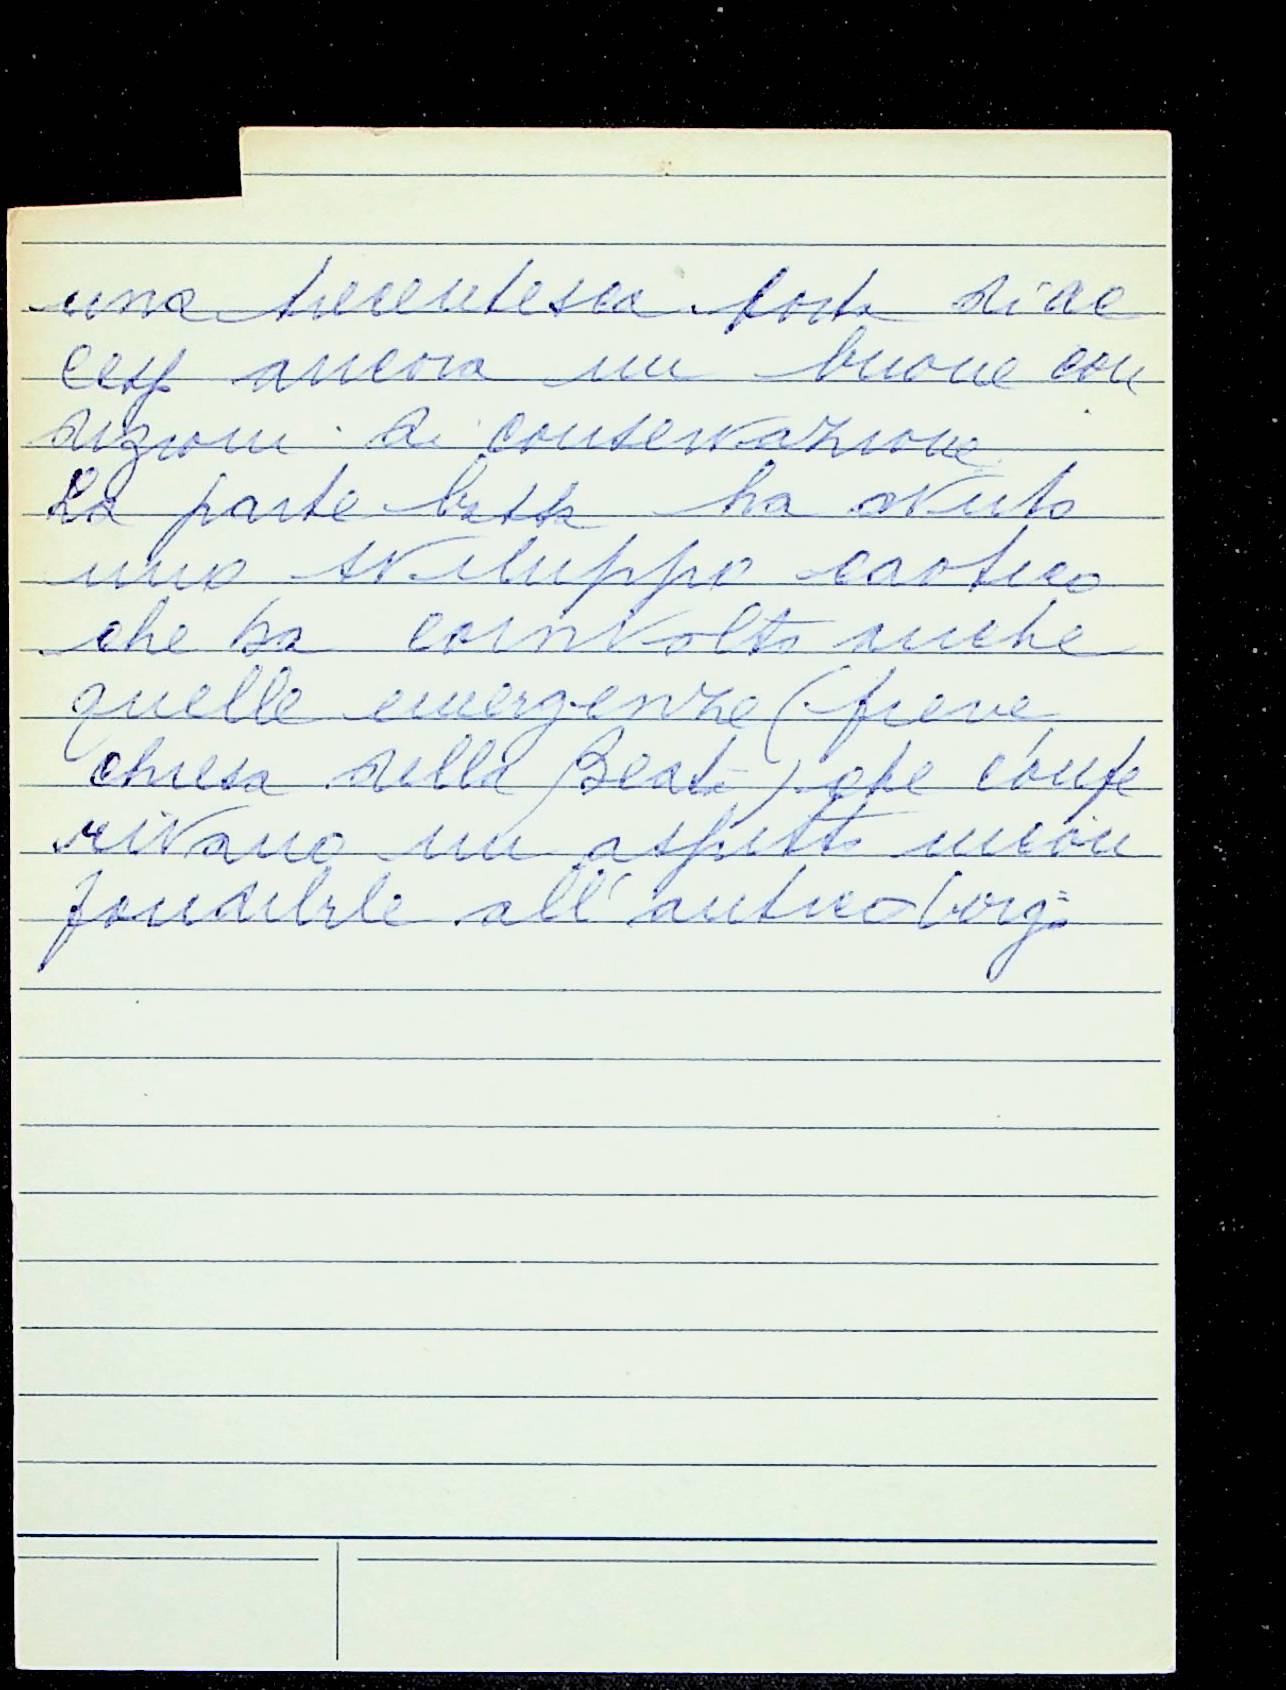 una trecentesca porta di ac
cesso ancora in buone con
dizioni di conservazione
La parte bassa ha avuto
uno sviluppo caotico
che ha coinvolto anche
quelle emergenze (pieve
chiesa della Beata) che confe
rivano un aspetto incon
fondibile all'antico borgo